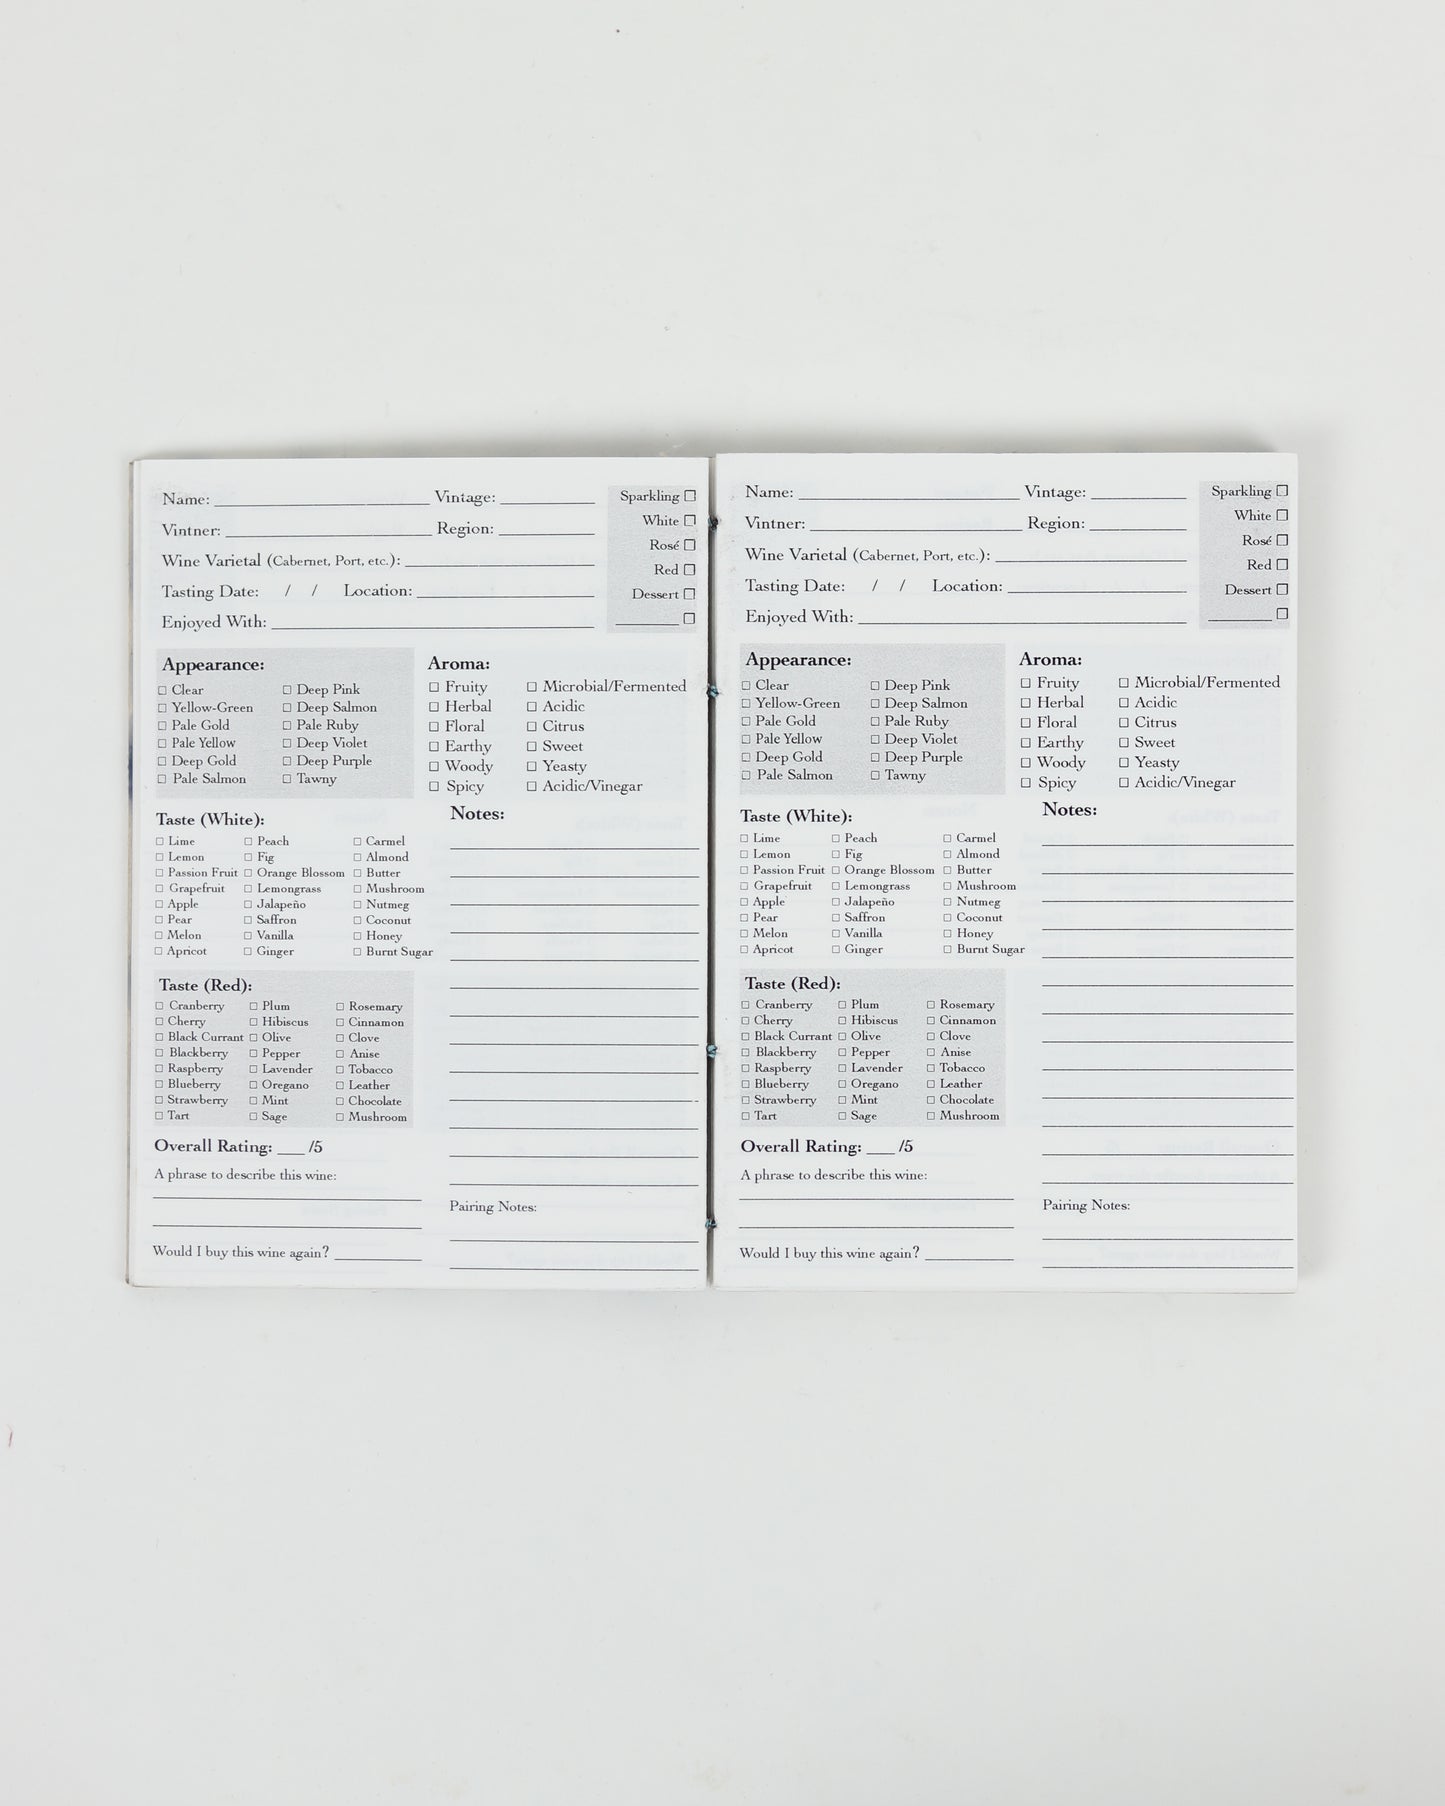 Name: Vintage:
Vintner: Region:
Wine Varietal (Cabernet, Port, etc.):
Tasting Date: / / Location:
Enjoyed With:
Sparkling
White
Rosé
Red
Dessert
Appearance:
Clear
Yellow-Green
Pale Gold
Pale Yellow
Deep Gold
Pale Salmon
Deep Pink
Deep Salmon
Pale Ruby
Deep Violet
Deep Purple
Tawny
Aroma:
Fruity
Herbal
Floral
Earthy
Woody
Spicy
Microbial/Fermented
Acidic
Citrus
Sweet
Yeasty
Acidic/Vinegar
Taste (White):
Lime
Lemon
Passion Fruit
Grapefruit
Apple
Pear
Melon
Apricot
Peach
Fig
Orange Blossom
Lemongrass
Jalapeño
Saffron
Vanilla
Ginger
Carmel
Almond
Butter
Mushroom
Nutmeg
Coconut
Honey
Burnt Sugar
Taste (Red):
Cranberry
Cherry
Black Currant
Blackberry
Raspberry
Blueberry
Strawberry
Tart
Plum
Hibiscus
Olive
Pepper
Lavender
Oregano
Mint
Sage
Rosemary
Cinnamon
Clove
Anise
Tobacco
Leather
Chocolate
Mushroom
Overall Rating: ___ /5
A phrase to describe this wine:
Would I buy this wine again?
Notes:
Pairing Notes:
Name: Vintage:
Vintner: Region:
Wine Varietal (Cabernet, Port, etc.):
Tasting Date: / / Location:
Enjoyed With:
Sparkling
White
Rosé
Red
Dessert
Appearance:
Clear
Yellow-Green
Pale Gold
Pale Yellow
Deep Gold
Pale Salmon
Deep Pink
Deep Salmon
Pale Ruby
Deep Violet
Deep Purple
Tawny
Aroma:
Fruity
Herbal
Floral
Earthy
Woody
Spicy
Microbial/Fermented
Acidic
Citrus
Sweet
Yeasty
Acidic/Vinegar
Taste (White):
Lime
Lemon
Passion Fruit
Grapefruit
Apple
Pear
Melon
Apricot
Peach
Fig
Orange Blossom
Lemongrass
Jalapeño
Saffron
Vanilla
Ginger
Carmel
Almond
Butter
Mushroom
Nutmeg
Coconut
Honey
Burnt Sugar
Taste (Red):
Cranberry
Cherry
Black Currant
Blackberry
Raspberry
Blueberry
Strawberry
Tart
Plum
Hibiscus
Olive
Pepper
Lavender
Oregano
Mint
Sage
Rosemary
Cinnamon
Clove
Anise
Tobacco
Leather
Chocolate
Mushroom
Overall Rating: ___ /5
A phrase to describe this wine:
Would I buy this wine again?
Notes:
Pairing Notes: